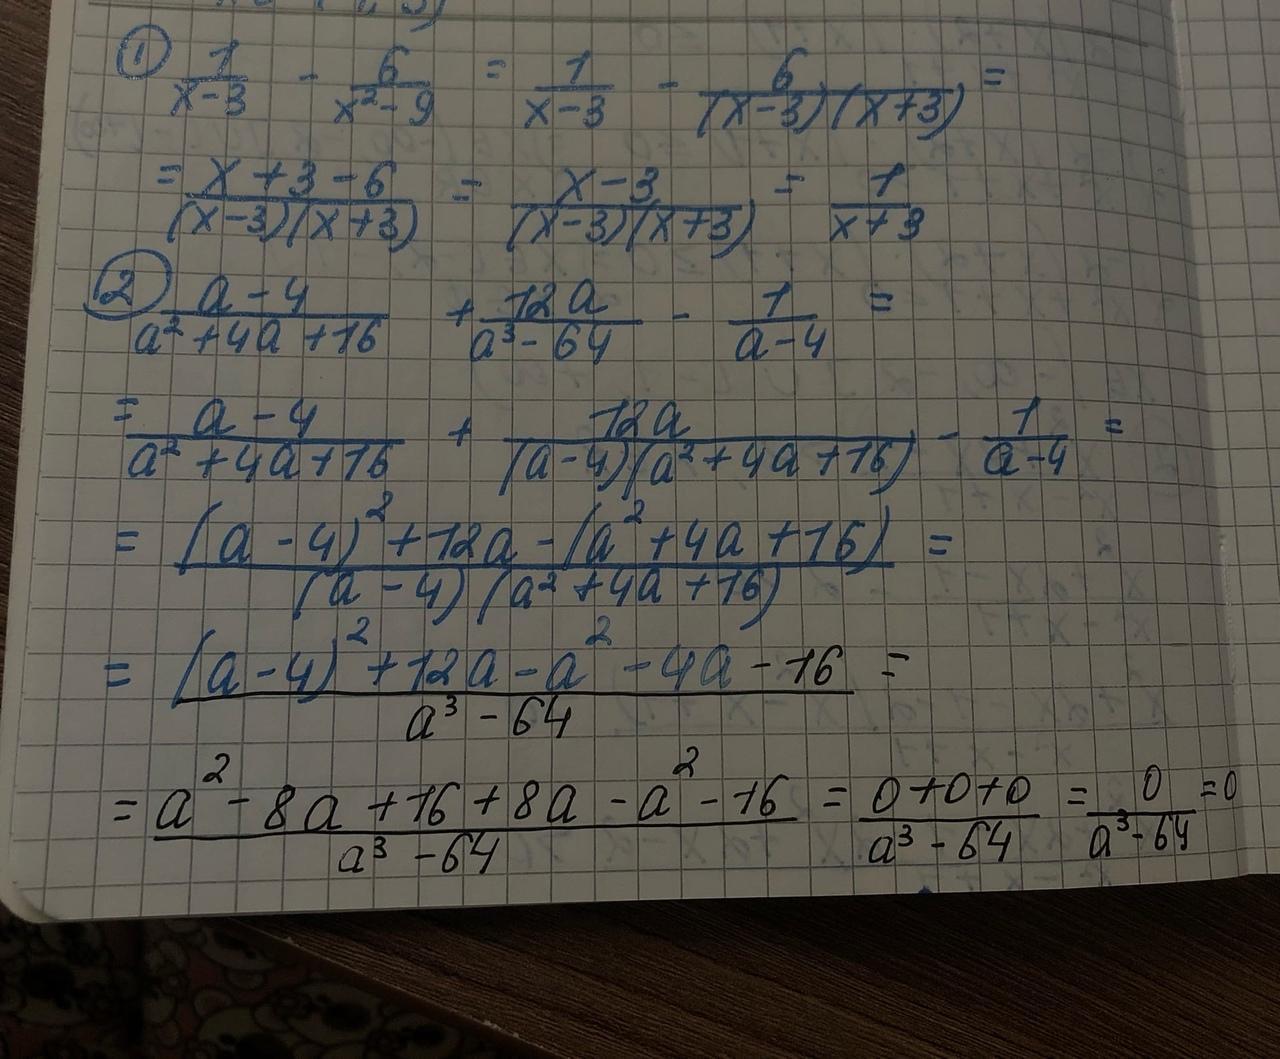 ① 1/(x-3) - 6/(x²-9) = 1/(x-3) - 6/((x-3)(x+3)) =
= (x+3-6)/((x-3)(x+3)) = (x-3)/((x-3)(x+3)) = 1/(x+3)
② (a-4)/(a²+4a+16) + 12a/(a³-64) - 1/(a-4) =
= (a-4)/(a²+4a+16) + 12a/((a-4)(a²+4a+16)) - 1/(a-4) =
= ((a-4)²+12a-(a²+4a+16))/((a-4)(a²+4a+16)) =
= ((a-4)²+12a-a²-4a-16)/(a³-64) =
= (a²-8a+16+8a-a²-16)/(a³-64) = (0+0+0)/(a³-64) = 0/(a³-64) = 0